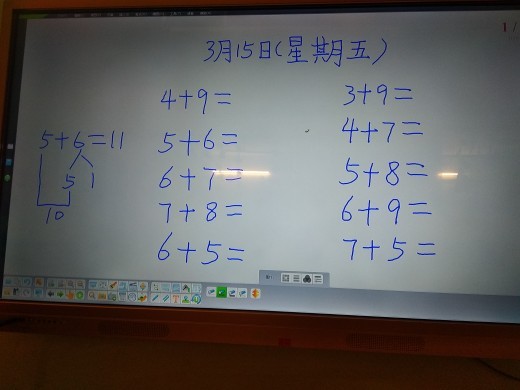 3月15日(星期五)
5+6=11
5 1
10
4+9=
5+6=
6+7=
7+8=
6+5=
3+9=
4+7=
5+8=
6+9=
7+5=